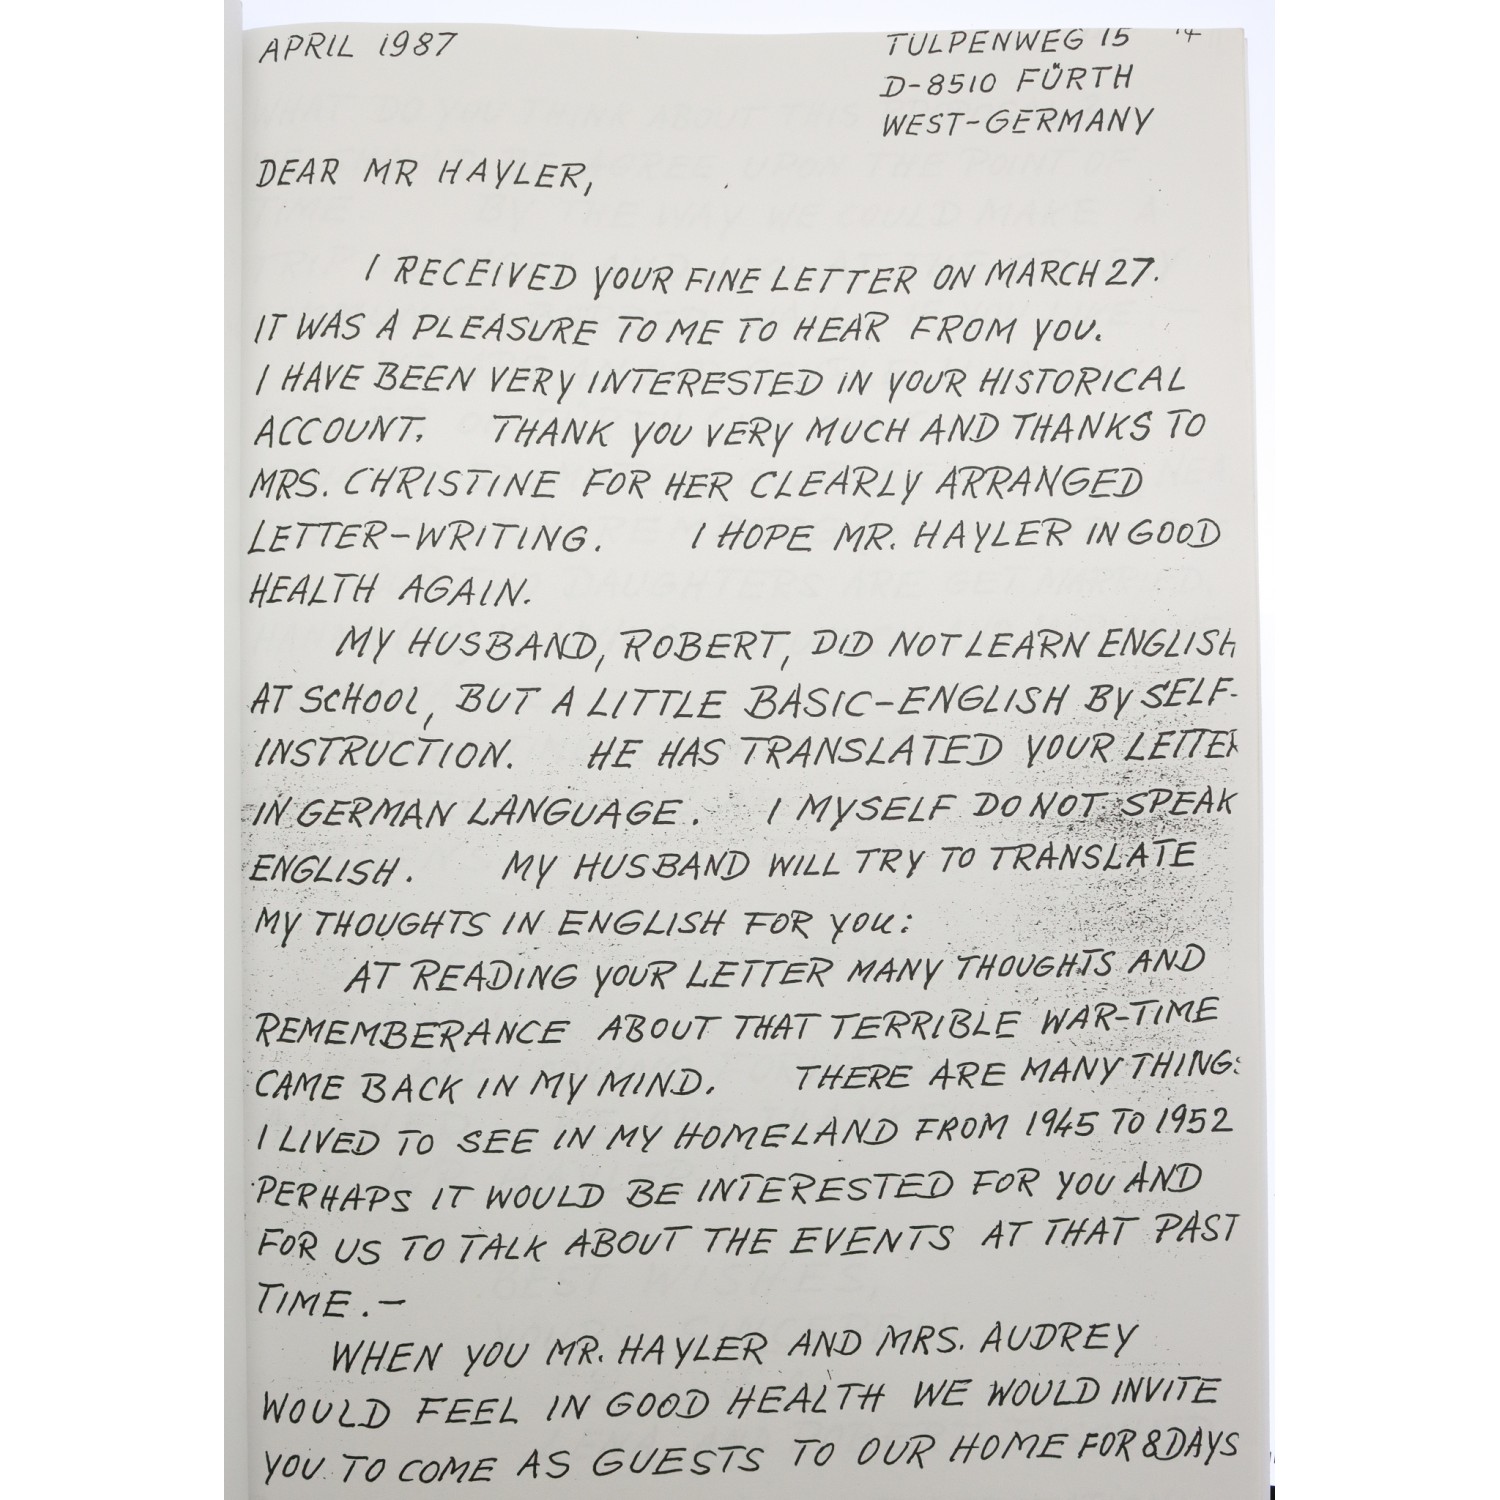 APRIL 1987
TULPENWEG 15 14
D-8510 FÜRTH
WEST-GERMANY
DEAR MR HAYLER,
I RECEIVED YOUR FINE LETTER ON MARCH 27.
IT WAS A PLEASURE TO ME TO HEAR FROM YOU.
I HAVE BEEN VERY INTERESTED IN YOUR HISTORICAL
ACCOUNT. THANK YOU VERY MUCH AND THANKS TO
MRS. CHRISTINE FOR HER CLEARLY ARRANGED
LETTER-WRITING. I HOPE MR. HAYLER IN GOOD
HEALTH AGAIN.
MY HUSBAND, ROBERT, DID NOT LEARN ENGLISH
AT SCHOOL, BUT A LITTLE BASIC-ENGLISH BY SELF-
INSTRUCTION. HE HAS TRANSLATED YOUR LETTER
IN GERMAN LANGUAGE. I MYSELF DO NOT SPEAK
ENGLISH. MY HUSBAND WILL TRY TO TRANSLATE
MY THOUGHTS IN ENGLISH FOR YOU:
AT READING YOUR LETTER MANY THOUGHTS AND
REMEMBERANCE ABOUT THAT TERRIBLE WAR-TIME
CAME BACK IN MY MIND. THERE ARE MANY THINGS
I LIVED TO SEE IN MY HOMELAND FROM 1945 TO 1952
PERHAPS IT WOULD BE INTERESTED FOR YOU AND
FOR US TO TALK ABOUT THE EVENTS AT THAT PAST
TIME.-
WHEN YOU MR. HAYLER AND MRS. AUDREY
WOULD FEEL IN GOOD HEALTH WE WOULD INVITE
YOU TO COME AS GUESTS TO OUR HOME FOR 8 DAYS